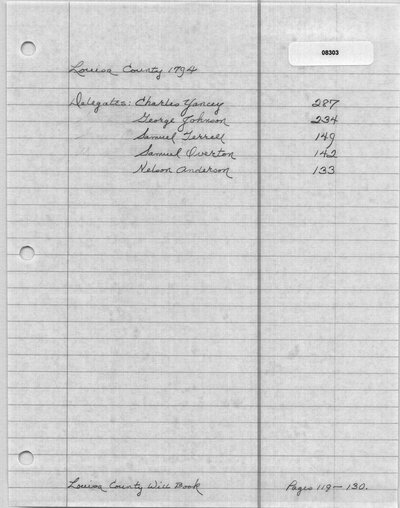 08303
Louisa County 1794
Delegates: Charles Yancey 287
George Johnson 234
Samuel Terrell 149
Samuel Overton 142
Nelson Anderson 133
Louisa County Will Book Pages 119-130.